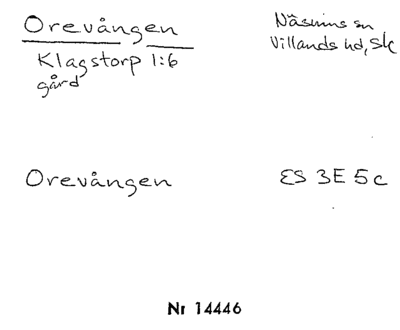 Orevången
Klagstorp 1:6
gård
Näsums sn
Villands hd, Sk
Orevången
ES 3E 5c
Nr 14446